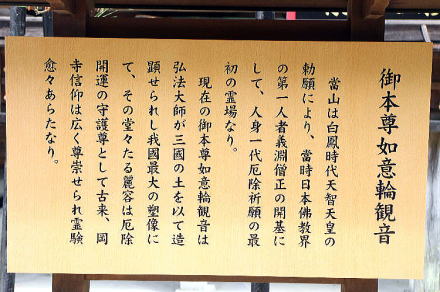 御本尊如意輪観音
當山は白鳳時代天智天皇の
勅願により、當時日本佛教界
の第一人者義淵僧正の開基に
して、人身一代厄除祈願の最
初の霊場なり。
現在の御本尊如意輪観音は
弘法大師が三國の土を以て造
顕せられし我國最大の塑像に
て、その堂々たる麗容は厄除
開運の守護尊として古来、岡
寺信仰は広く尊崇せられ霊験
愈々あらたなり。